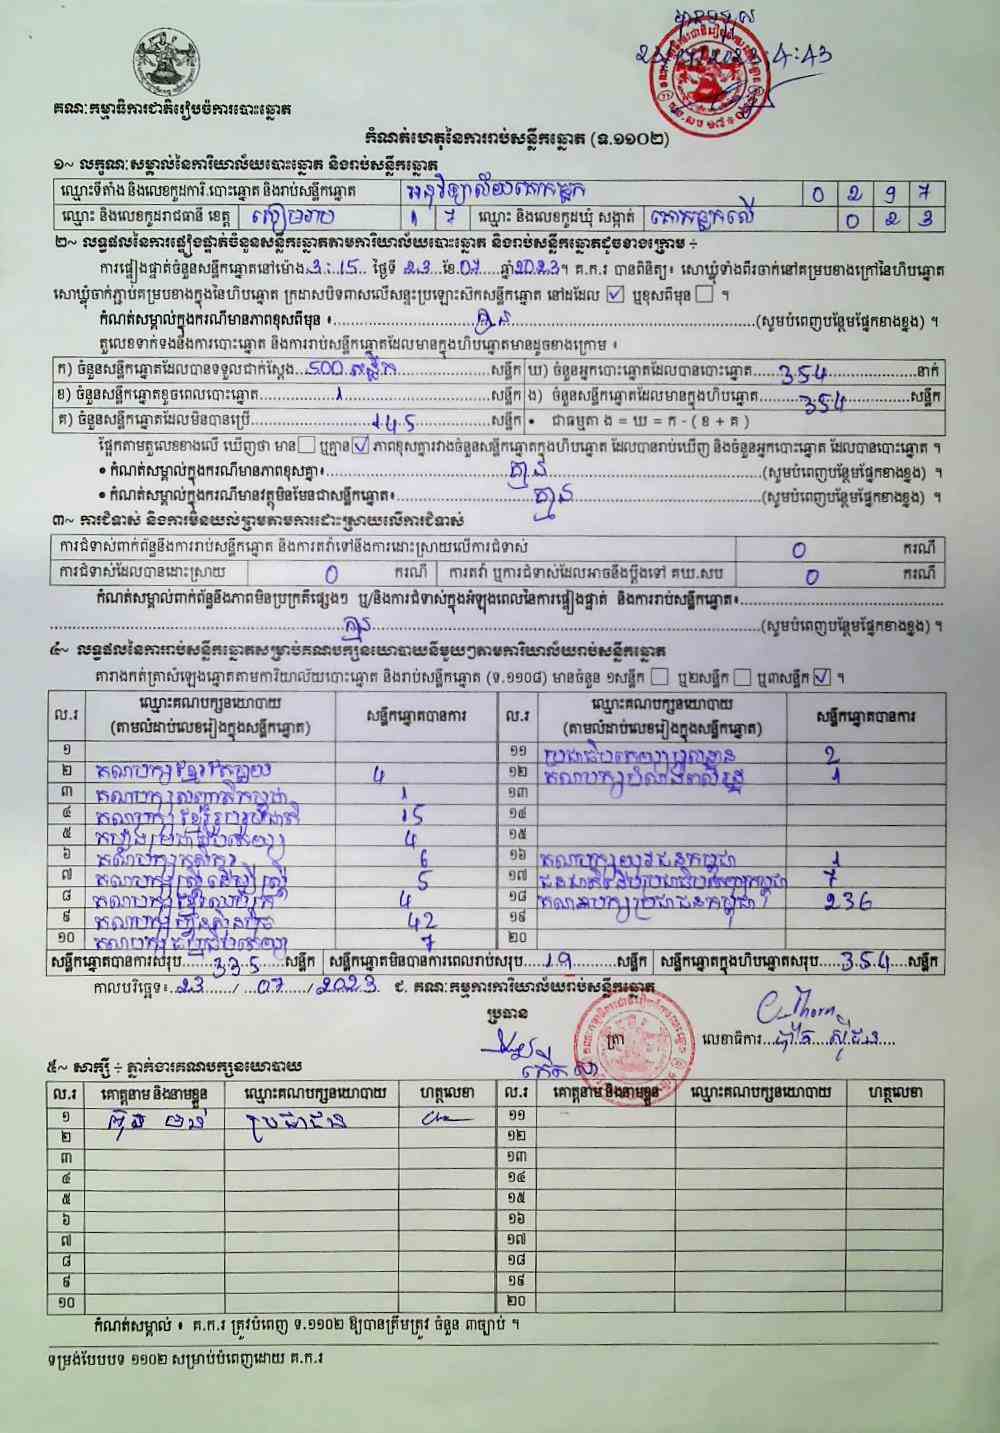 4:43
គណៈកម្មាធិការជាតិរៀបចំការបោះឆ្នោត
កំណត់ហេតុនៃការរាប់សន្លឹកឆ្នោត (ទ.១១០២)
១~ លក្ខណៈសម្គាល់នៃការិយាល័យបោះឆ្នោត និងរាប់សន្លឹកឆ្នោត
ឈ្មោះទីតាំង និងលេខកូដការិ.បោះឆ្នោត និងរាប់សន្លឹកឆ្នោត អនុវិទ្យាល័យគោកធ្លក 0 2 9 7
ឈ្មោះ និងលេខកូដរាជធានី ខេត្ត សៀមរាប 1 7 ឈ្មោះ និងលេខកូដឃុំ សង្កាត់ គោកធ្លកលើ 0 2 3
២~ លទ្ធផលនៃការផ្ទៀងផ្ទាត់ចំនួនសន្លឹកឆ្នោតតាមការិយាល័យបោះឆ្នោត និងរាប់សន្លឹកឆ្នោតដូចខាងក្រោម ÷
ការផ្ទៀងផ្ទាត់ចំនួនសន្លឹកឆ្នោតនៅម៉ោង 3:15 ថ្ងៃទី 23 ខែ 07 ឆ្នាំ 2023។ គ.ក.រ បានពិនិត្យ៖ សោឃ្លុំទាំងពីរចាក់នៅគម្របខាងក្រៅនៃហិបឆ្នោត
សោឃ្លុំចាក់ភ្ជាប់គម្របខាងក្នុងនៃហិបឆ្នោត ក្រដាសបិទពាសលើសន្ទះប្រឡោះស៊កសន្លឹកឆ្នោត នៅដដែល ☑ ឬខុសពីមុន ☐ ។
កំណត់សម្គាល់ក្នុងករណីមានភាពខុសពីមុន ៖ គ្មាន (សូមបំពេញបន្ថែមផ្នែកខាងខ្នង) ។
តួលេខទាក់ទងនឹងការបោះឆ្នោត និងការរាប់សន្លឹកឆ្នោតដែលមានក្នុងហិបឆ្នោតមានដូចខាងក្រោម ៖
ក) ចំនួនសន្លឹកឆ្នោតដែលបានទទួលជាក់ស្តែង 500 សន្លឹក សន្លឹក ឃ) ចំនួនអ្នកបោះឆ្នោតដែលបានបោះឆ្នោត 354 នាក់
ខ) ចំនួនសន្លឹកឆ្នោតខូចពេលបោះឆ្នោត 1 សន្លឹក ង) ចំនួនសន្លឹកឆ្នោតដែលមានក្នុងហិបឆ្នោត 354 សន្លឹក
គ) ចំនួនសន្លឹកឆ្នោតដែលមិនបានប្រើ 145 សន្លឹក • ជាធម្មតា ង = ឃ = ក - ( ខ + គ )
ផ្អែកតាមតួលេខខាងលើ ឃើញថា មាន ☐ ឬគ្មាន ☑ ភាពខុសគ្នារវាងចំនួនសន្លឹកឆ្នោតក្នុងហិបឆ្នោត ដែលបានរាប់ឃើញ និងចំនួនអ្នកបោះឆ្នោត ដែលបានបោះឆ្នោត ។
• កំណត់សម្គាល់ក្នុងករណីមានភាពខុសគ្នា៖ គ្មាន (សូមបំពេញបន្ថែមផ្នែកខាងខ្នង) ។
• កំណត់សម្គាល់ក្នុងករណីមានវត្ថុមិនមែនជាសន្លឹកឆ្នោត៖ គ្មាន (សូមបំពេញបន្ថែមផ្នែកខាងខ្នង) ។
៣~ ការជំទាស់ និងការមិនយល់ព្រមតាមការដោះស្រាយលើការជំទាស់
ការជំទាស់ពាក់ព័ន្ធនឹងការរាប់សន្លឹកឆ្នោត និងការតវ៉ាទៅនឹងការដោះស្រាយលើការជំទាស់ 0 ករណី
ការជំទាស់ដែលបានដោះស្រាយ 0 ករណី ការតវ៉ា ឬការជំទាស់ដែលអាចនឹងប្តឹងទៅ គឃ.សប 0 ករណី
កំណត់សម្គាល់ពាក់ព័ន្ធនឹងភាពមិនប្រក្រតីផ្សេងៗ ឬ/និងការជំទាស់ក្នុងអំឡុងពេលនៃការផ្ទៀងផ្ទាត់ និងការរាប់សន្លឹកឆ្នោត៖
គ្មាន (សូមបំពេញបន្ថែមផ្នែកខាងខ្នង) ។
៤~ លទ្ធផលនៃការរាប់សន្លឹកឆ្នោតសម្រាប់គណបក្សនយោបាយនីមួយៗតាមការិយាល័យរាប់សន្លឹកឆ្នោត
តារាងកត់ត្រាសំឡេងឆ្នោតតាមការិយាល័យបោះឆ្នោត និងរាប់សន្លឹកឆ្នោត (ទ.១១០៨) មានចំនួន ១សន្លឹក ☐ ឬ២សន្លឹក ☐ ឬ៣សន្លឹក ☑ ។
ល.រ ឈ្មោះគណបក្សនយោបាយ (តាមលំដាប់លេខរៀងក្នុងសន្លឹកឆ្នោត) សន្លឹកឆ្នោតបានការ ល.រ ឈ្មោះគណបក្សនយោបាយ (តាមលំដាប់លេខរៀងក្នុងសន្លឹកឆ្នោត) សន្លឹកឆ្នោតបានការ
១ ១១ ប្រជាធិបតេយ្យមូលដ្ឋាន 2
២ គណបក្សខ្មែរតែមួយ 4 ១២ គណបក្ស 1
៣ គណបក្សសញ្ជាតិកម្ពុជា 1 ១៣
៤ គណបក្សខ្មែររួបរួមជាតិ 15 ១៤
៥ កម្លាំងប្រជាធិបតេយ្យ 4 ១៥
៦ គណបក្សកសិករ 6 ១៦ គណបក្សយុវជនកម្ពុជា 1
៧ គណបក្សស្ត្រីដើម្បីស្ត្រី 5 ១៧ ជនជាតិដើមប្រជាធិបតេយ្យកម្ពុជា 7
៨ គណបក្សខ្មែរ 4 ១៨ គណបក្សប្រជាជនកម្ពុជា 236
៩ គណបក្សហ៊្វុនស៊ិនប៉ិច 42 ១៩
១០ គណបក្សធម្មាធិបតេយ្យ 7 ២០
សន្លឹកឆ្នោតបានការសរុប 335 សន្លឹក សន្លឹកឆ្នោតមិនបានការពេលរាប់សរុប 19 សន្លឹក សន្លឹកឆ្នោតក្នុងហិបឆ្នោតសរុប 354 សន្លឹក
កាលបរិច្ឆេទ៖ 23 / 07 / 2023 ជ. គណៈកម្មការការិយាល័យរាប់សន្លឹកឆ្នោត
ប្រធាន ត្រា លេខាធិការ
៥~ សាក្សី ÷ ភ្នាក់ងារគណបក្សនយោបាយ
ល.រ គោត្តនាម និងនាមខ្លួន ឈ្មោះគណបក្សនយោបាយ ហត្ថលេខា ល.រ គោត្តនាម និងនាមខ្លួន ឈ្មោះគណបក្សនយោបាយ ហត្ថលេខា
១ ប្រជាជន ១១
២ ១២
៣ ១៣
៤ ១៤
៥ ១៥
៦ ១៦
៧ ១៧
៨ ១៨
៩ ១៩
១០ ២០
កំណត់សម្គាល់ ៖ គ.ក.រ ត្រូវបំពេញ ទ.១១០២ ឱ្យបានត្រឹមត្រូវ ចំនួន ៣ច្បាប់ ។
ទម្រង់បែបបទ ១១០២ សម្រាប់បំពេញដោយ គ.ក.រ